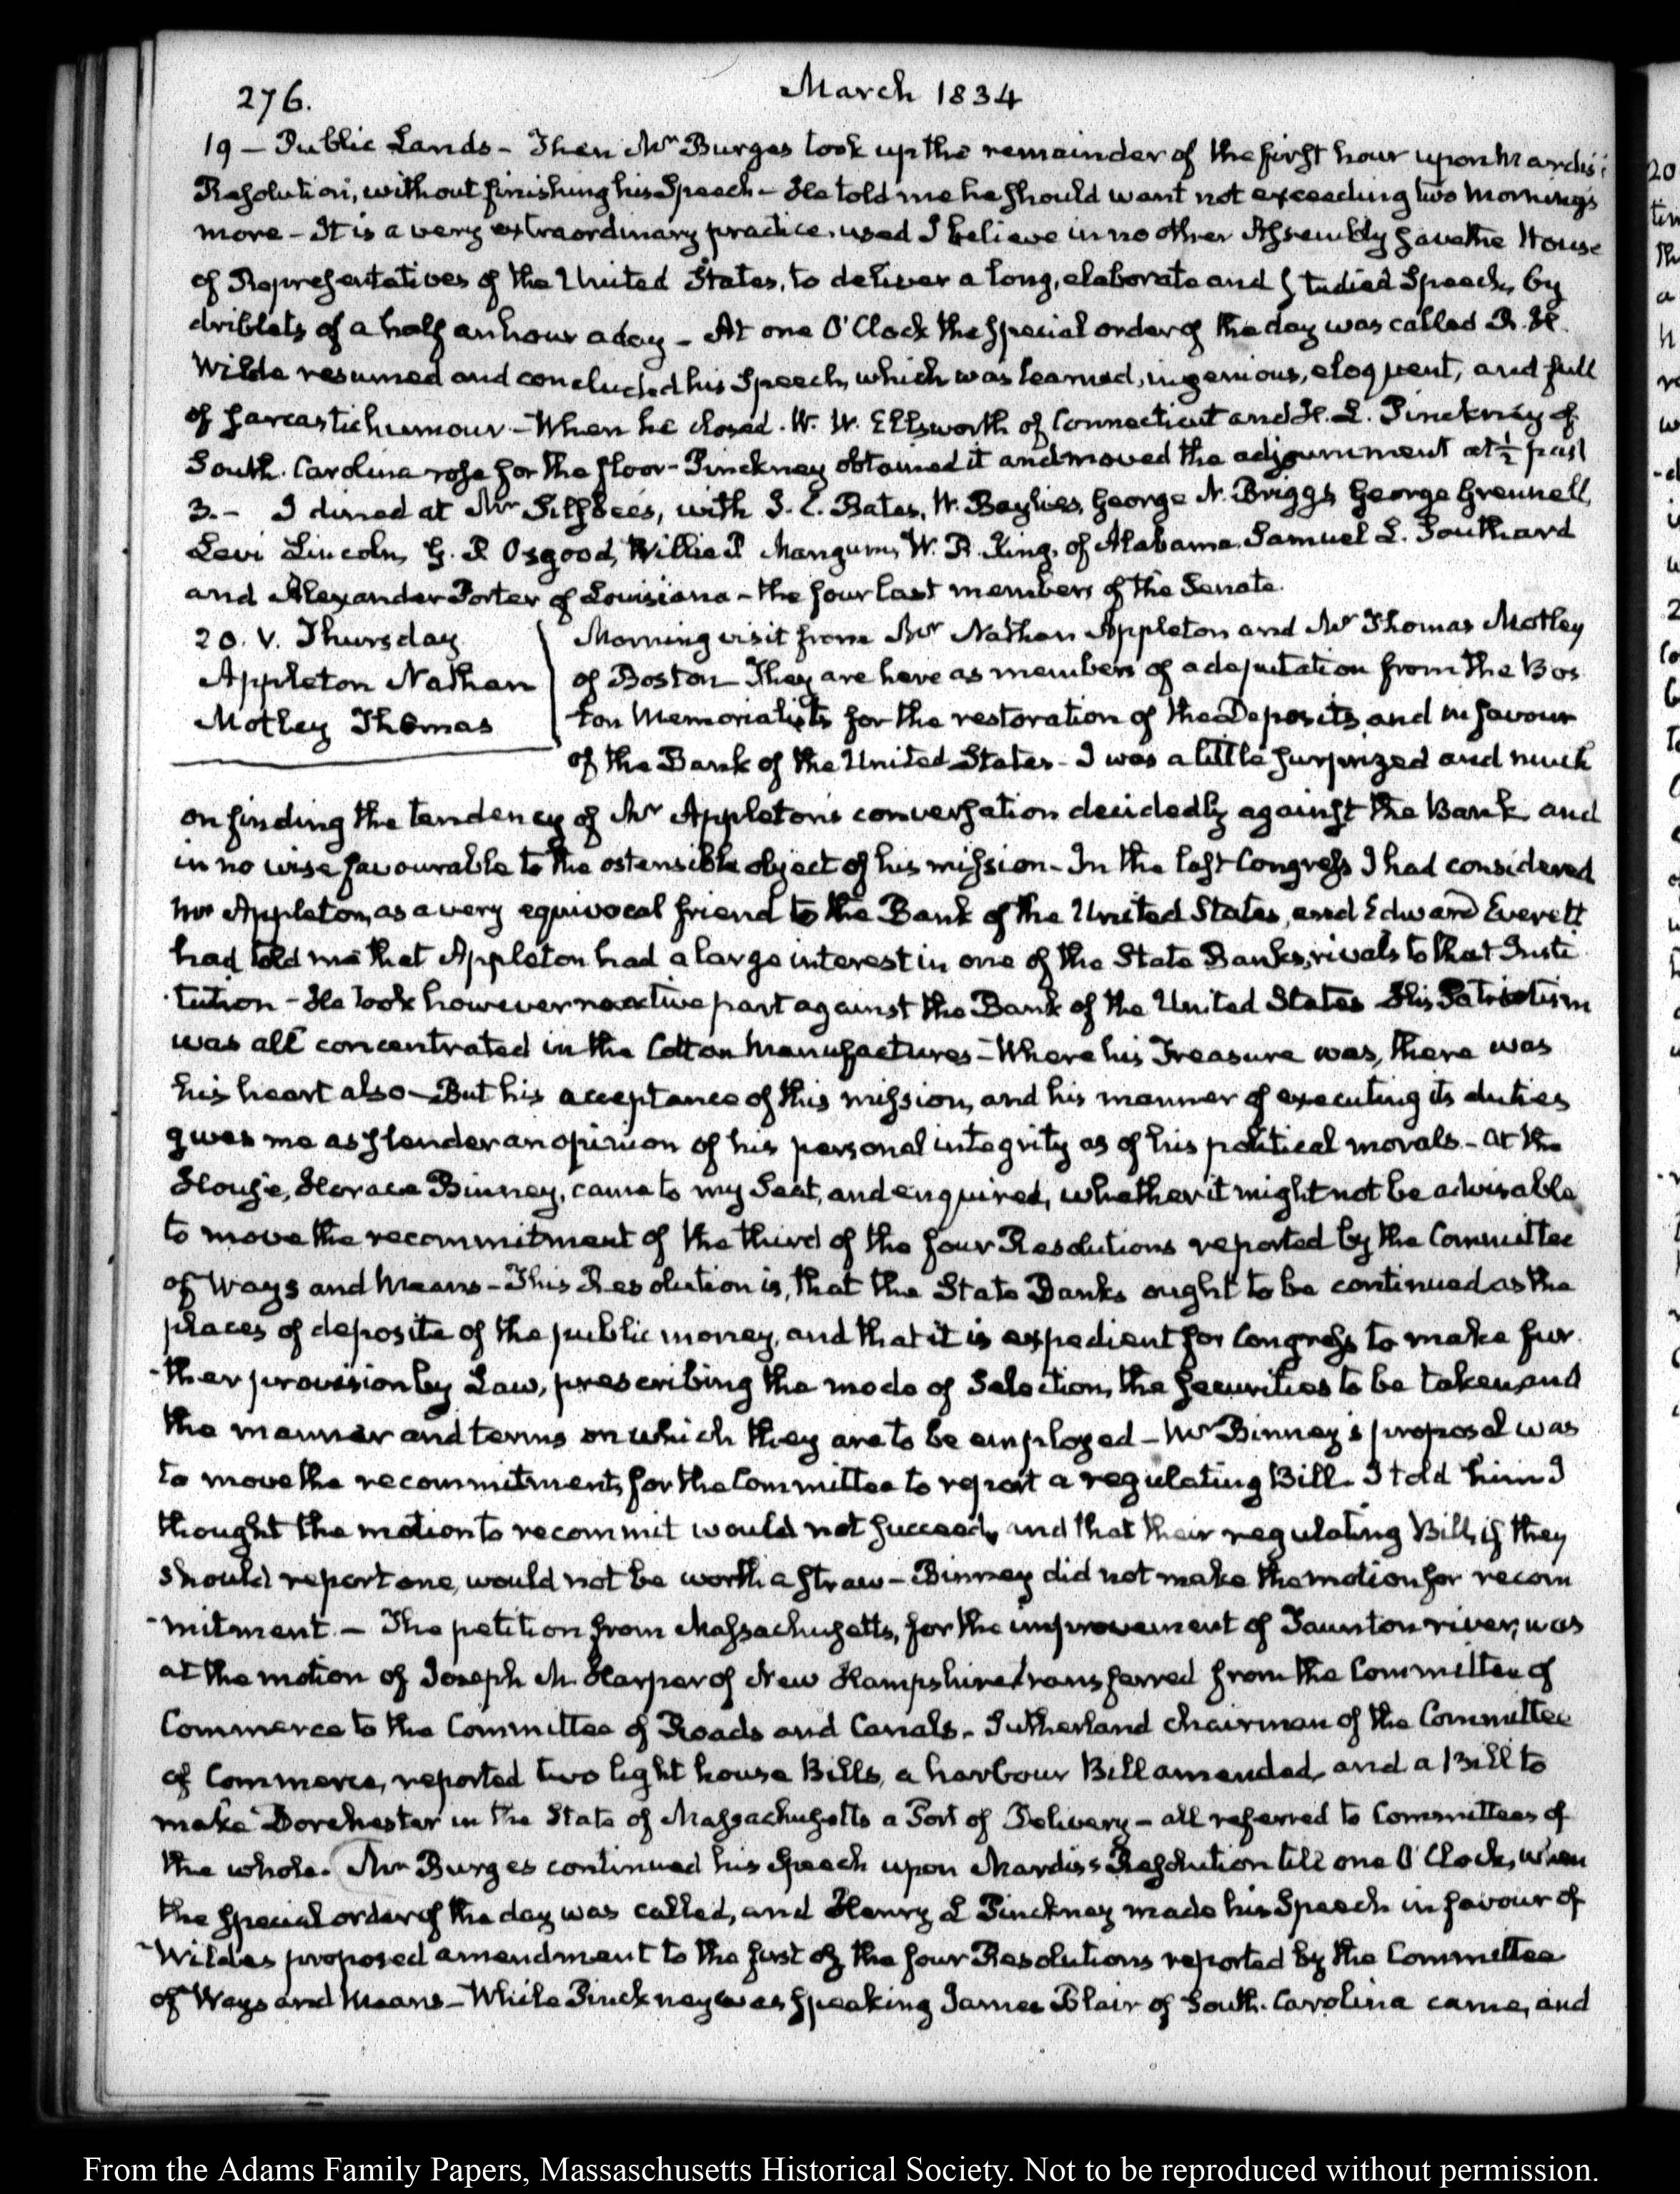 276.
March 1834
19 — Public Lands – Then Mr Burges took up the remainder of the first hour upon Mardis's
Resolution, without finishing his Speech – He told me he should want not exceeding two mornings
more – It is a very extraordinary practice, used I believe in no other Assembly save the House
of Representatives of the United States, to deliver a long, elaborate and studied Speech, by
driblets of a half an hour a day – At one O'Clock the special order of the day was called R. H.
Wilde resumed and concluded his Speech, which was learned, ingenious, eloquent, and full
of sarcastic humour – When he closed. W. W. Ellsworth of Connecticut and H. L. Pinckney of
South. Carolina rose for the floor – Pinckney obtained it and moved the adjournment at ½ past
3. – I dined at Mr Silsbee's, with I. C. Bates, W. Baylies, George N. Briggs, George Grennell,
Levi Lincoln, G. P. Osgood, Willie P Mangum, W. R. King, of Alabama, Samuel L. Southard
and Alexander Porter of Louisiana – the four last members of the Senate.
20. V. Thursday
Appleton Nathan
Motley Thomas
Morning visit from Mr Nathan Appleton and Mr Thomas Motley
of Boston – They are here as members of a deputation from the Bos
ton Memorialists for the restoration of the Deposits, and in favour
of the Bank of the United States – I was a little surprized and much
on finding the tendency of Mr Appleton's conversation decidedly against the Bank, and
in no wise favourable to the ostensible object of his mission – In the last Congress I had considered
Mr Appleton, as a very equivocal friend to the Bank of the United States, and Edward Everett
had told me that Appleton had a large interest in one of the State Banks, rivals to that Insti
-tution – He took however no active part against the Bank of the United States His Patriotism
was all concentrated in the Cotton Manufactures – Where his Treasure was, there was
his heart also – But his acceptance of this mission, and his manner of executing its duties
gives me as slender an opinion of his personal integrity as of his political morals – At the
House, Horace Binney, came to my Seat, and enquired, whether it might not be advisable
to move the recommitment of the third of the four Resolutions reported by the Committee
of Ways and Means – This Resolution is, that the State Banks ought to be continued as the
places of deposite of the public money, and that it is expedient for Congress to make fur
-ther provision by Law, prescribing the mode of Selection, the securities to be taken, and
the manner and terms on which they are to be employed – Mr Binney's proposal was
to move the recommitment, for the Committee to report a regulating Bill. I told him I
thought the motion to recommit would not succeed, and that their regulating Bill, if they
should report one, would not be worth a straw – Binney did not make the motion for recom
-mitment. – The petition from Massachusetts, for the improvement of Taunton river, was
at the motion of Joseph M. Harper of New Hampshire transferred from the Committee of
Commerce to the Committee of Roads and Canals. Sutherland chairman of the Committee
of Commerce, reported two light house Bills, a harbour Bill amended, and a Bill to
make Dorchester in the State of Massachusetts a Port of Delivery – all referred to Committees of
the whole. Mr Burges continued his Speech upon Mardis's Resolution till one O'Clock, when
the special order of the day was called, and Henry L Pinckney made his Speech in favour of
Wildes proposed amendment to the first of the four Resolutions reported by the Committee
of Ways and Means – While Pinckney was speaking James Blair of South. Carolina came, and
From the Adams Family Papers, Massaschusetts Historical Society. Not to be reproduced without permission.